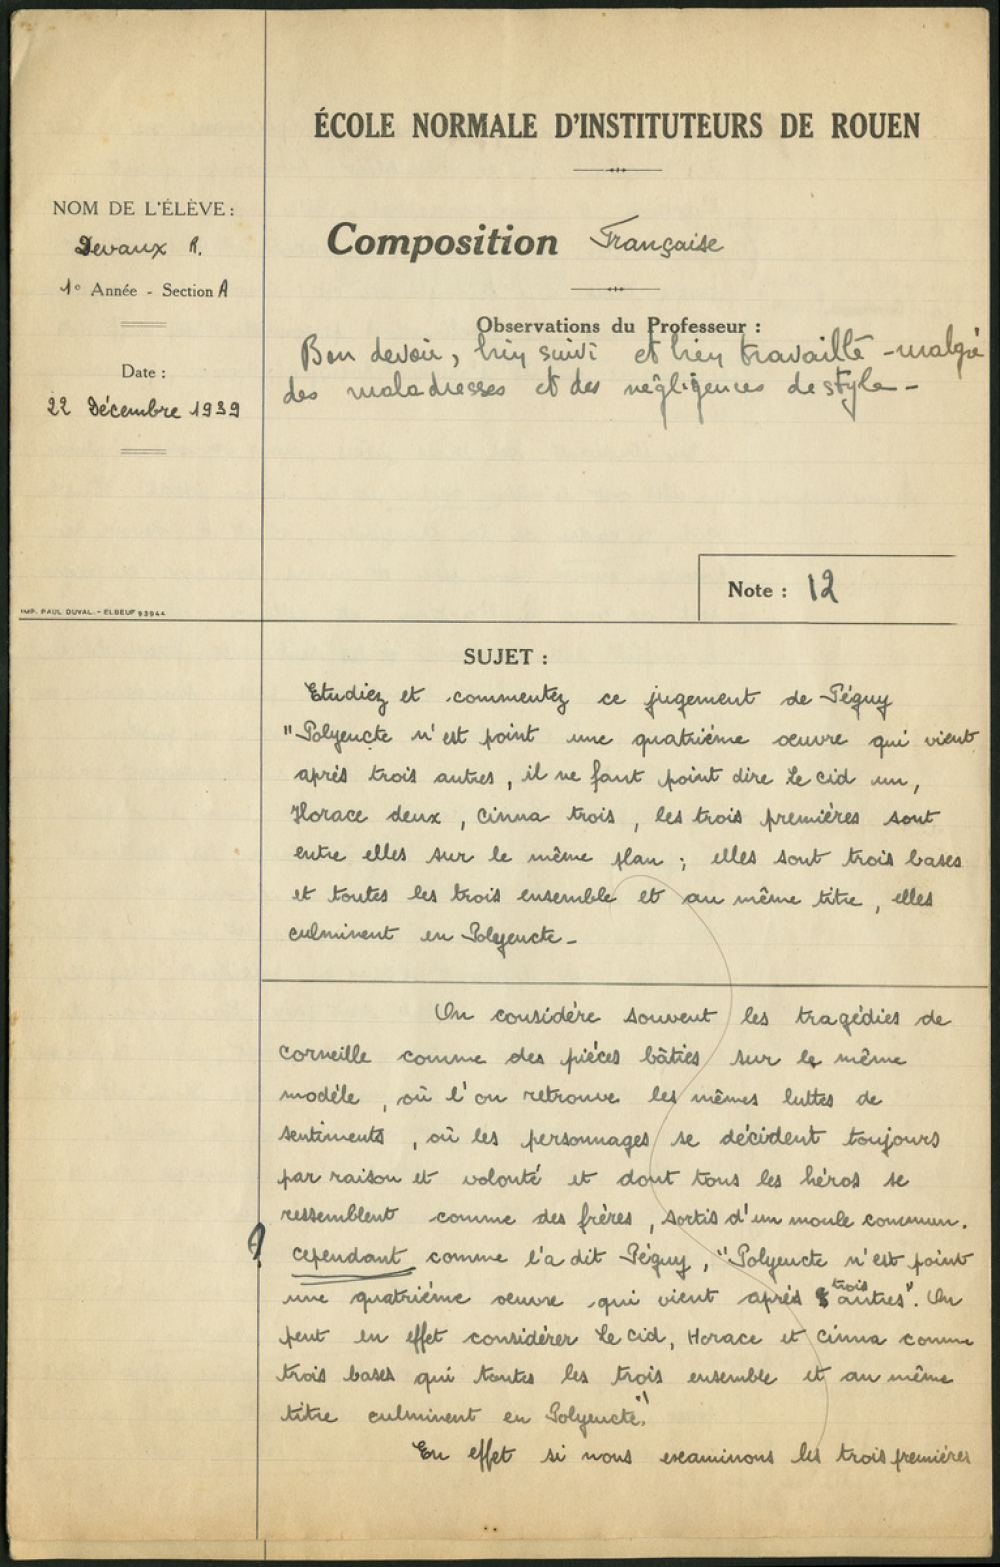 ÉCOLE NORMALE D'INSTITUTEURS DE ROUEN
NOM DE L'ÉLÈVE :
Devaux R.
1e Année - Section A
Date :
22 Décembre 1939
Composition Française
Observations du Professeur :
Bon devoir, bien suivi et bien travaillé - malgré
des maladresses et des négligences de style -
Note : 12
IMP. PAUL DUVAL. - ELBEUF 93944
SUJET :
Etudiez et commentez ce jugement de Péguy
"Polyeucte n'est point une quatriéme oeuvre qui vient
aprés trois autres, il ne faut point dire Le Cid un,
Horace deux, Cinna trois, les trois premiéres sont
entre elles sur le même plan ; elles sont trois bases
et toutes les trois ensemble et au même titre, elles
culminent en Polyeucte -
On considére souvent les tragédies de
Corneille comme des piéces bâties sur le même
modéle, où l'on retrouve les mêmes luttes de
sentiments, où les personnages se décident toujours
par raison et volonté et dont tous les héros se
ressemblent comme des frères, sortis d'un moule commun.
? Cependant comme l'a dit Péguy, "Polyeucte n'est point
une quatriéme oeuvre qui vient aprés trois autres". On
peut en effet considérer Le Cid, Horace et Cinna comme
trois bases qui toutes les trois ensemble et au même
titre culminent en Polyeucte."
En effet si nous examinons les trois premiéres